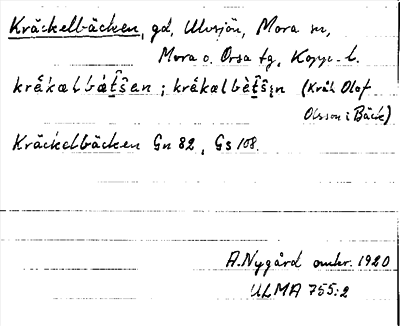 Kräckelbäcken, gd, Ulvsjön, Mora sn,
Mora o. Orsa tg, Kopp. l.
(Kräk Olof
Olsson i Bäck)
Kräckelbäcken Gn 82, Gs 108.
A. Nygård omkr. 1920
ULMA 755:2